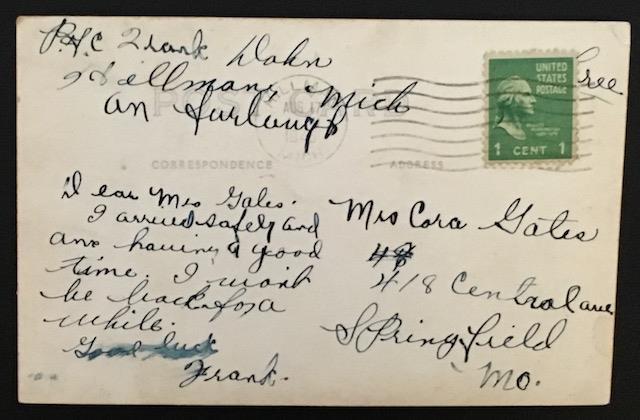 Pvc Frank Dohn
Hillman, Mich
on Furlough
Free
POST CARD
AUG 17
UNITED
STATES
POSTAGE
1 CENT 1
CORRESPONDENCE
ADDRESS
Dear Mrs Gates.
I arrived safely and
am having a good
time. I won't
be back for a
while.
Good luck
Frank.
Mrs Cora Gates
418 Central ave
Springfield
Mo.